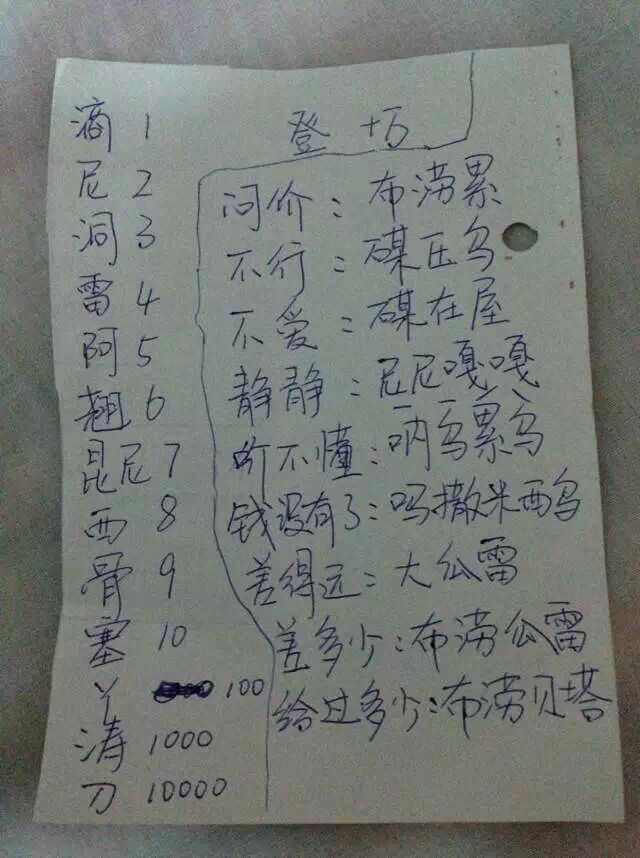 滴 1
尼 2
洞 3
雷 4
阿 5
翘 6
昆尼 7
西 8
骨 9
塞 10
丫 100
涛 1000
刀 10000
登 十万
问价：布涝累
不行：碟压乌
不爱：碟在屋
静静：尼尼嘎嘎
听不懂：呐乌累乌
钱没有了：吗撒米西乌
差得远：大公雷
差多少：布涝公雷
给过多少：布涝贝塔